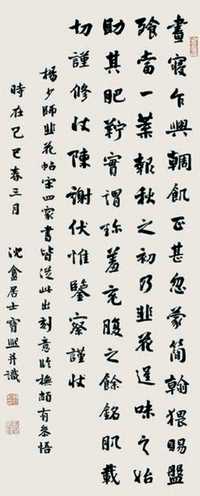 晝寢乍興輖飢正甚忽蒙簡翰猥賜盤
飧當一葉報秋之初乃韭花逞味之始
助其肥羜實謂珎羞充腹之餘銘肌載
切謹修狀陳謝伏惟鑒察謹狀
楊少師韭花帖宋四家書皆從此出刻意臨橅頗有參悟
時在己巳春三月 沈盦居士寶熙并識